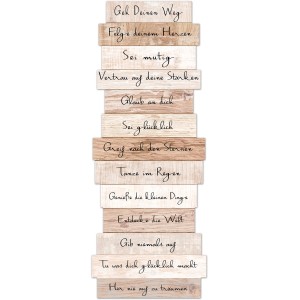 Geh Deinen Weg
Folge deinem Herzen
Sei mutig
Vertrau auf deine Stärken
Glaub an dich
Sei glücklich
Greif nach den Sternen
Tanze im Regen
Genieße die kleinen Dinge
Entdecke die Welt
Gib niemals auf
Tu was dich glücklich macht
Hör nie auf zu träumen